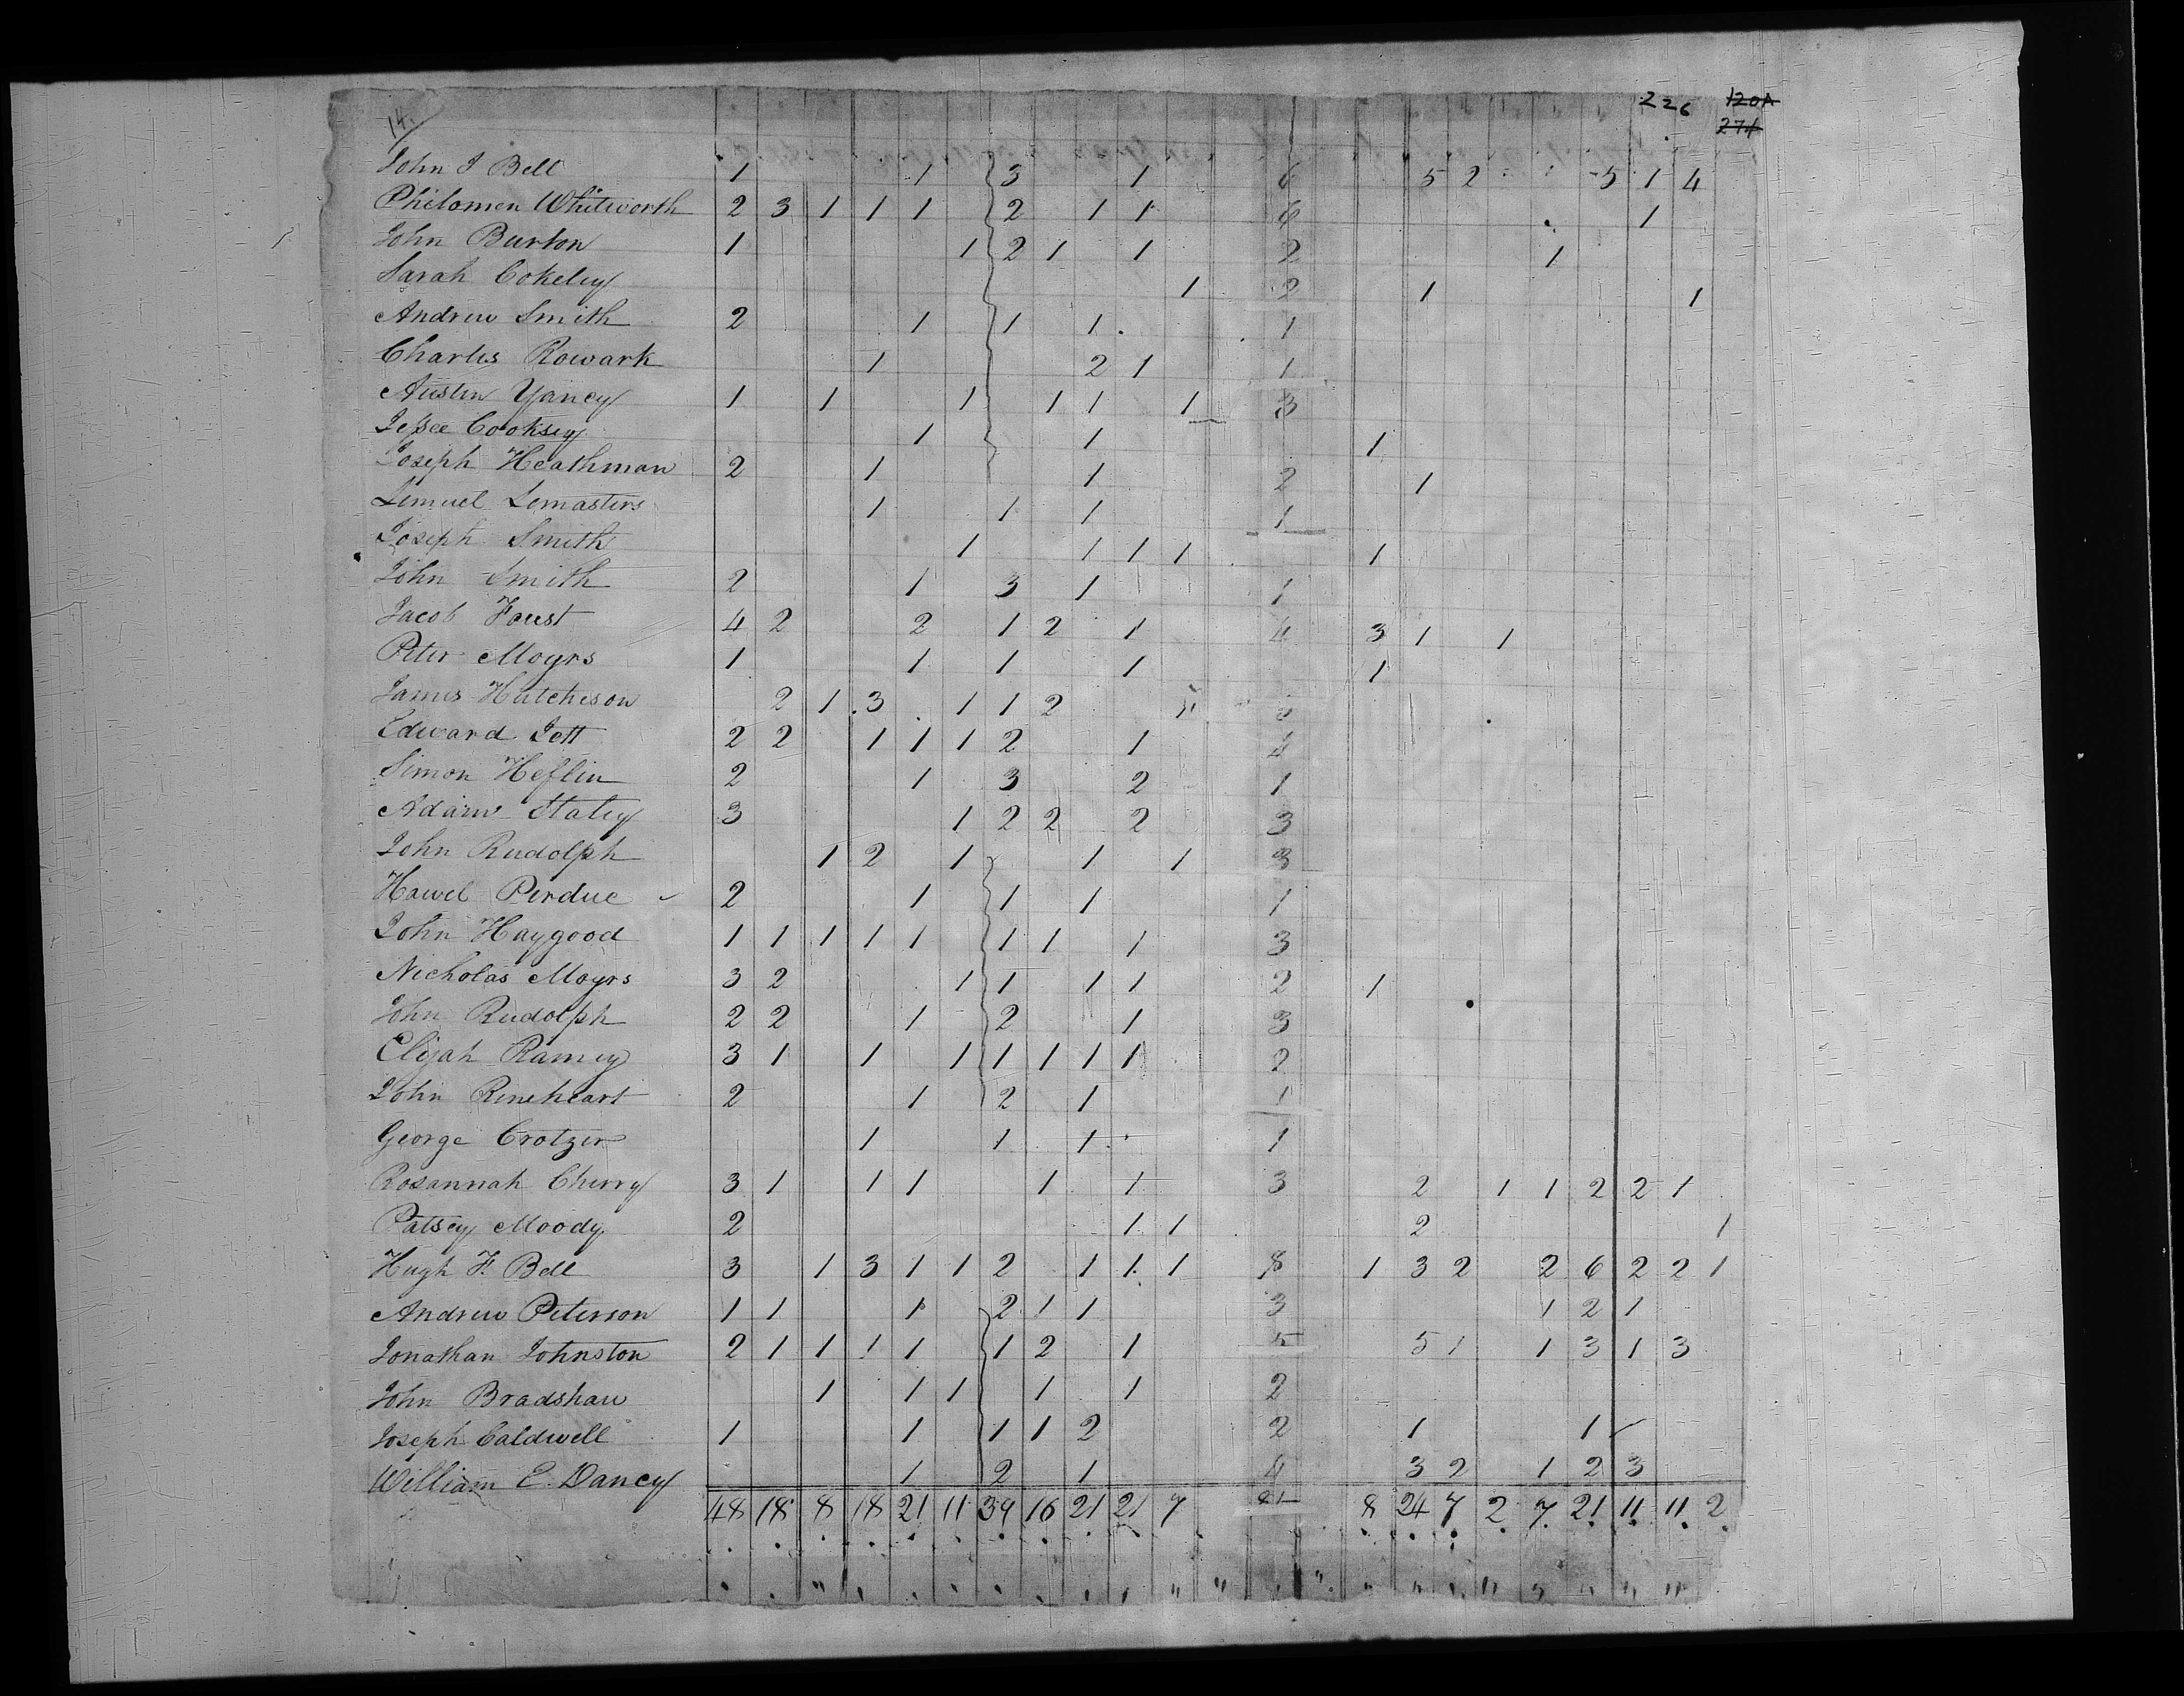 14.
226 120A
271
John J Bell 1 1 3 1 6 5 2 5 1 4
Philomen Whitworth 2 3 1 1 1 2 1 1 6 1
John Burton 1 1 2 1 1 2 1
Sarah Cokeley 1 2 1 1
Andrew Smith 2 1 1 1 1
Charles Rowark 1 2 1 1
Austin Yancy 1 1 1 1 1 1 3
Jessee Cooksey 1 1 1
Joseph Heathman 2 1 1 2 1
Lemuel Lemasters 1 1 1 1
Joseph Smith 1 1 1 1 1
John Smith 2 1 3 1 1
Jacob Foust 4 2 2 1 2 1 4 3 1 1
Peter Moyrs 1 1 1 1 1
James Hutcheson 2 1 3 1 1 2
Edward Jett 2 2 1 1 1 2 1 4
Simon Heflin 2 1 3 2 1
Adam Staley 3 1 2 2 2 3
John Rudolph 1 2 1 1 1 3
Hawel Perdue 2 1 1 1 1
John Haygood 1 1 1 1 1 1 1 1 3
Nicholas Moyrs 3 2 1 1 1 1 2 1
John Rudolph 2 2 1 2 1 3
Elijah Ramey 3 1 1 1 1 1 1 1 2
John Rineheart 2 1 2 1 1
George Crotzer 1 1 1 1
Rosannah Cherry 3 1 1 1 1 1 3 2 1 1 2 2 1
Patsey Moody 2 1 1 2 1
Hugh F. Bell 3 1 3 1 1 2 1 1 1 8 1 3 2 2 6 2 2 1
Andrew Peterson 1 1 1 2 1 1 3 1 2 1
Jonathan Johnston 2 1 1 1 1 1 2 1 5 5 1 1 3 1 3
John Bradshaw 1 1 1 1 1 2
Joseph Caldwell 1 1 1 1 2 2 1 1
William E. Dancy 1 2 1 4 3 2 1 2 3
48 18 8 18 21 11 39 16 21 21 7 81 8 24 7 2 7 21 11 11 2